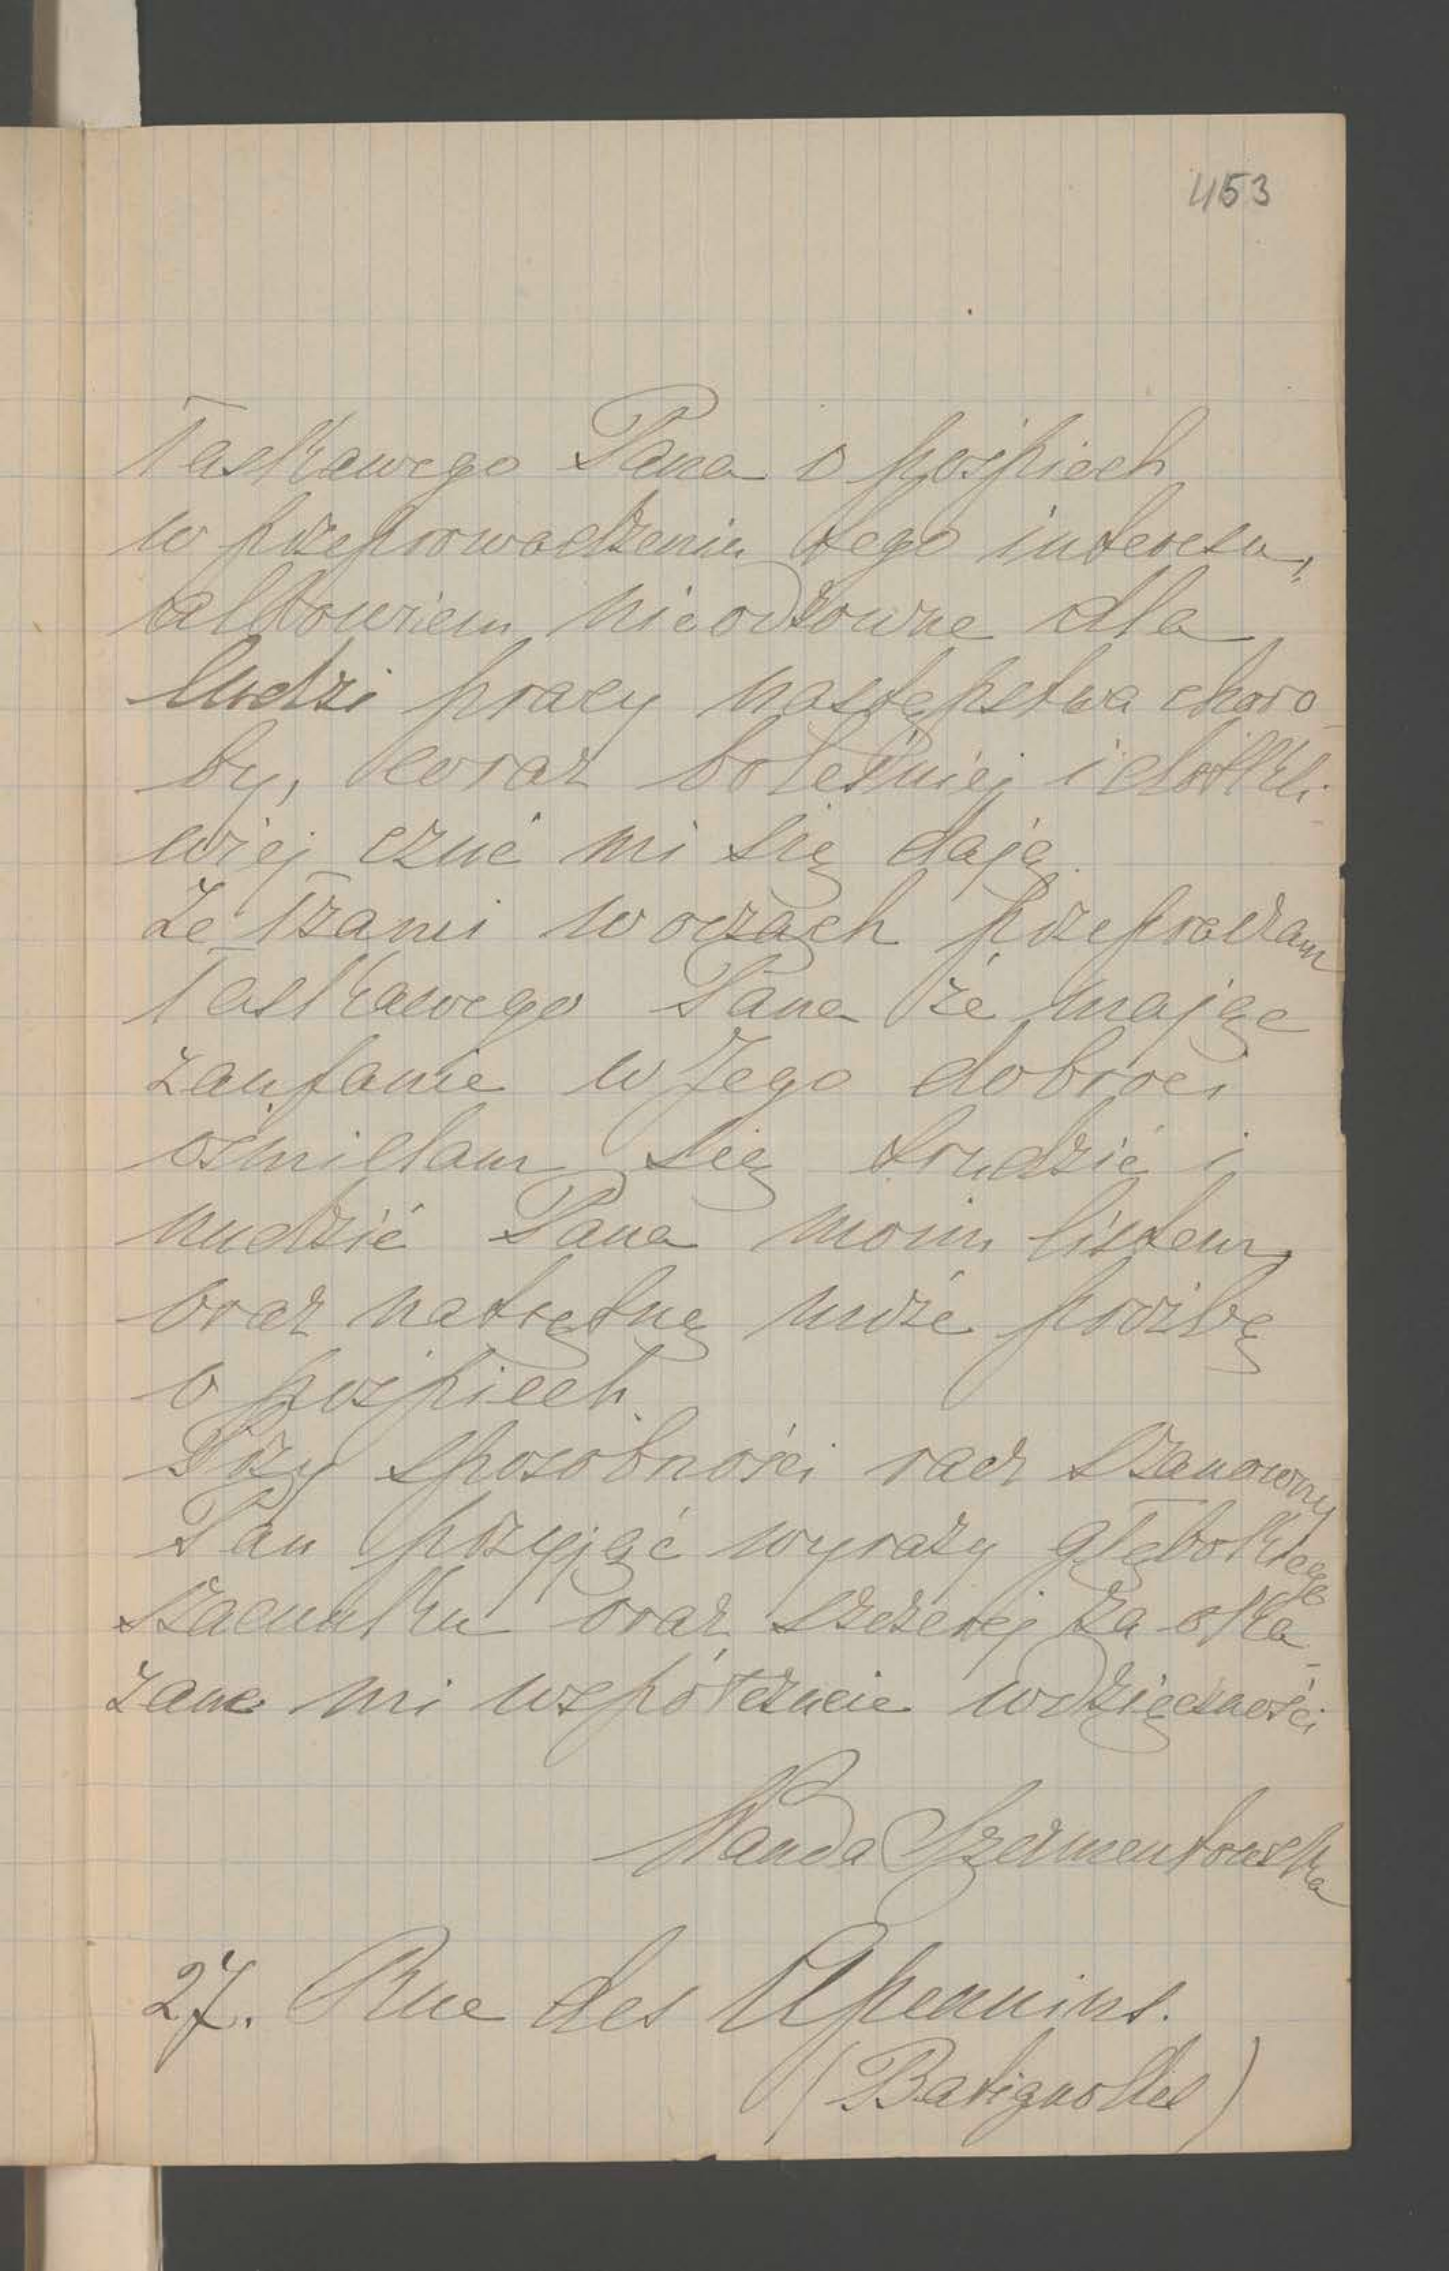 453
łaskawego Pana o pośpiech
w przeprowadzeniu tego interesu,
albowiem nieodzowne dla
ludzi pracy następstwa choro-
by, coraz boleśniej i dotkli-
wiej czuć mi się dają.
Ze łzami w oczach przepraszam
łaskawego Pana że mając
zaufanie w Jego dobroci
ośmielam się trudzić i
nudzić Pana moim listem,
oraz natrętną może prośbą
o pośpiech.
Przy sposobności racz Szanowny
Pan przyjąć wyrazy głębokiego
szacunku oraz szczerej za oka-
zane mi współczucie wdzięczności
Wanda Szermentowska
27. Rue des Apennins.
(Batignolles)